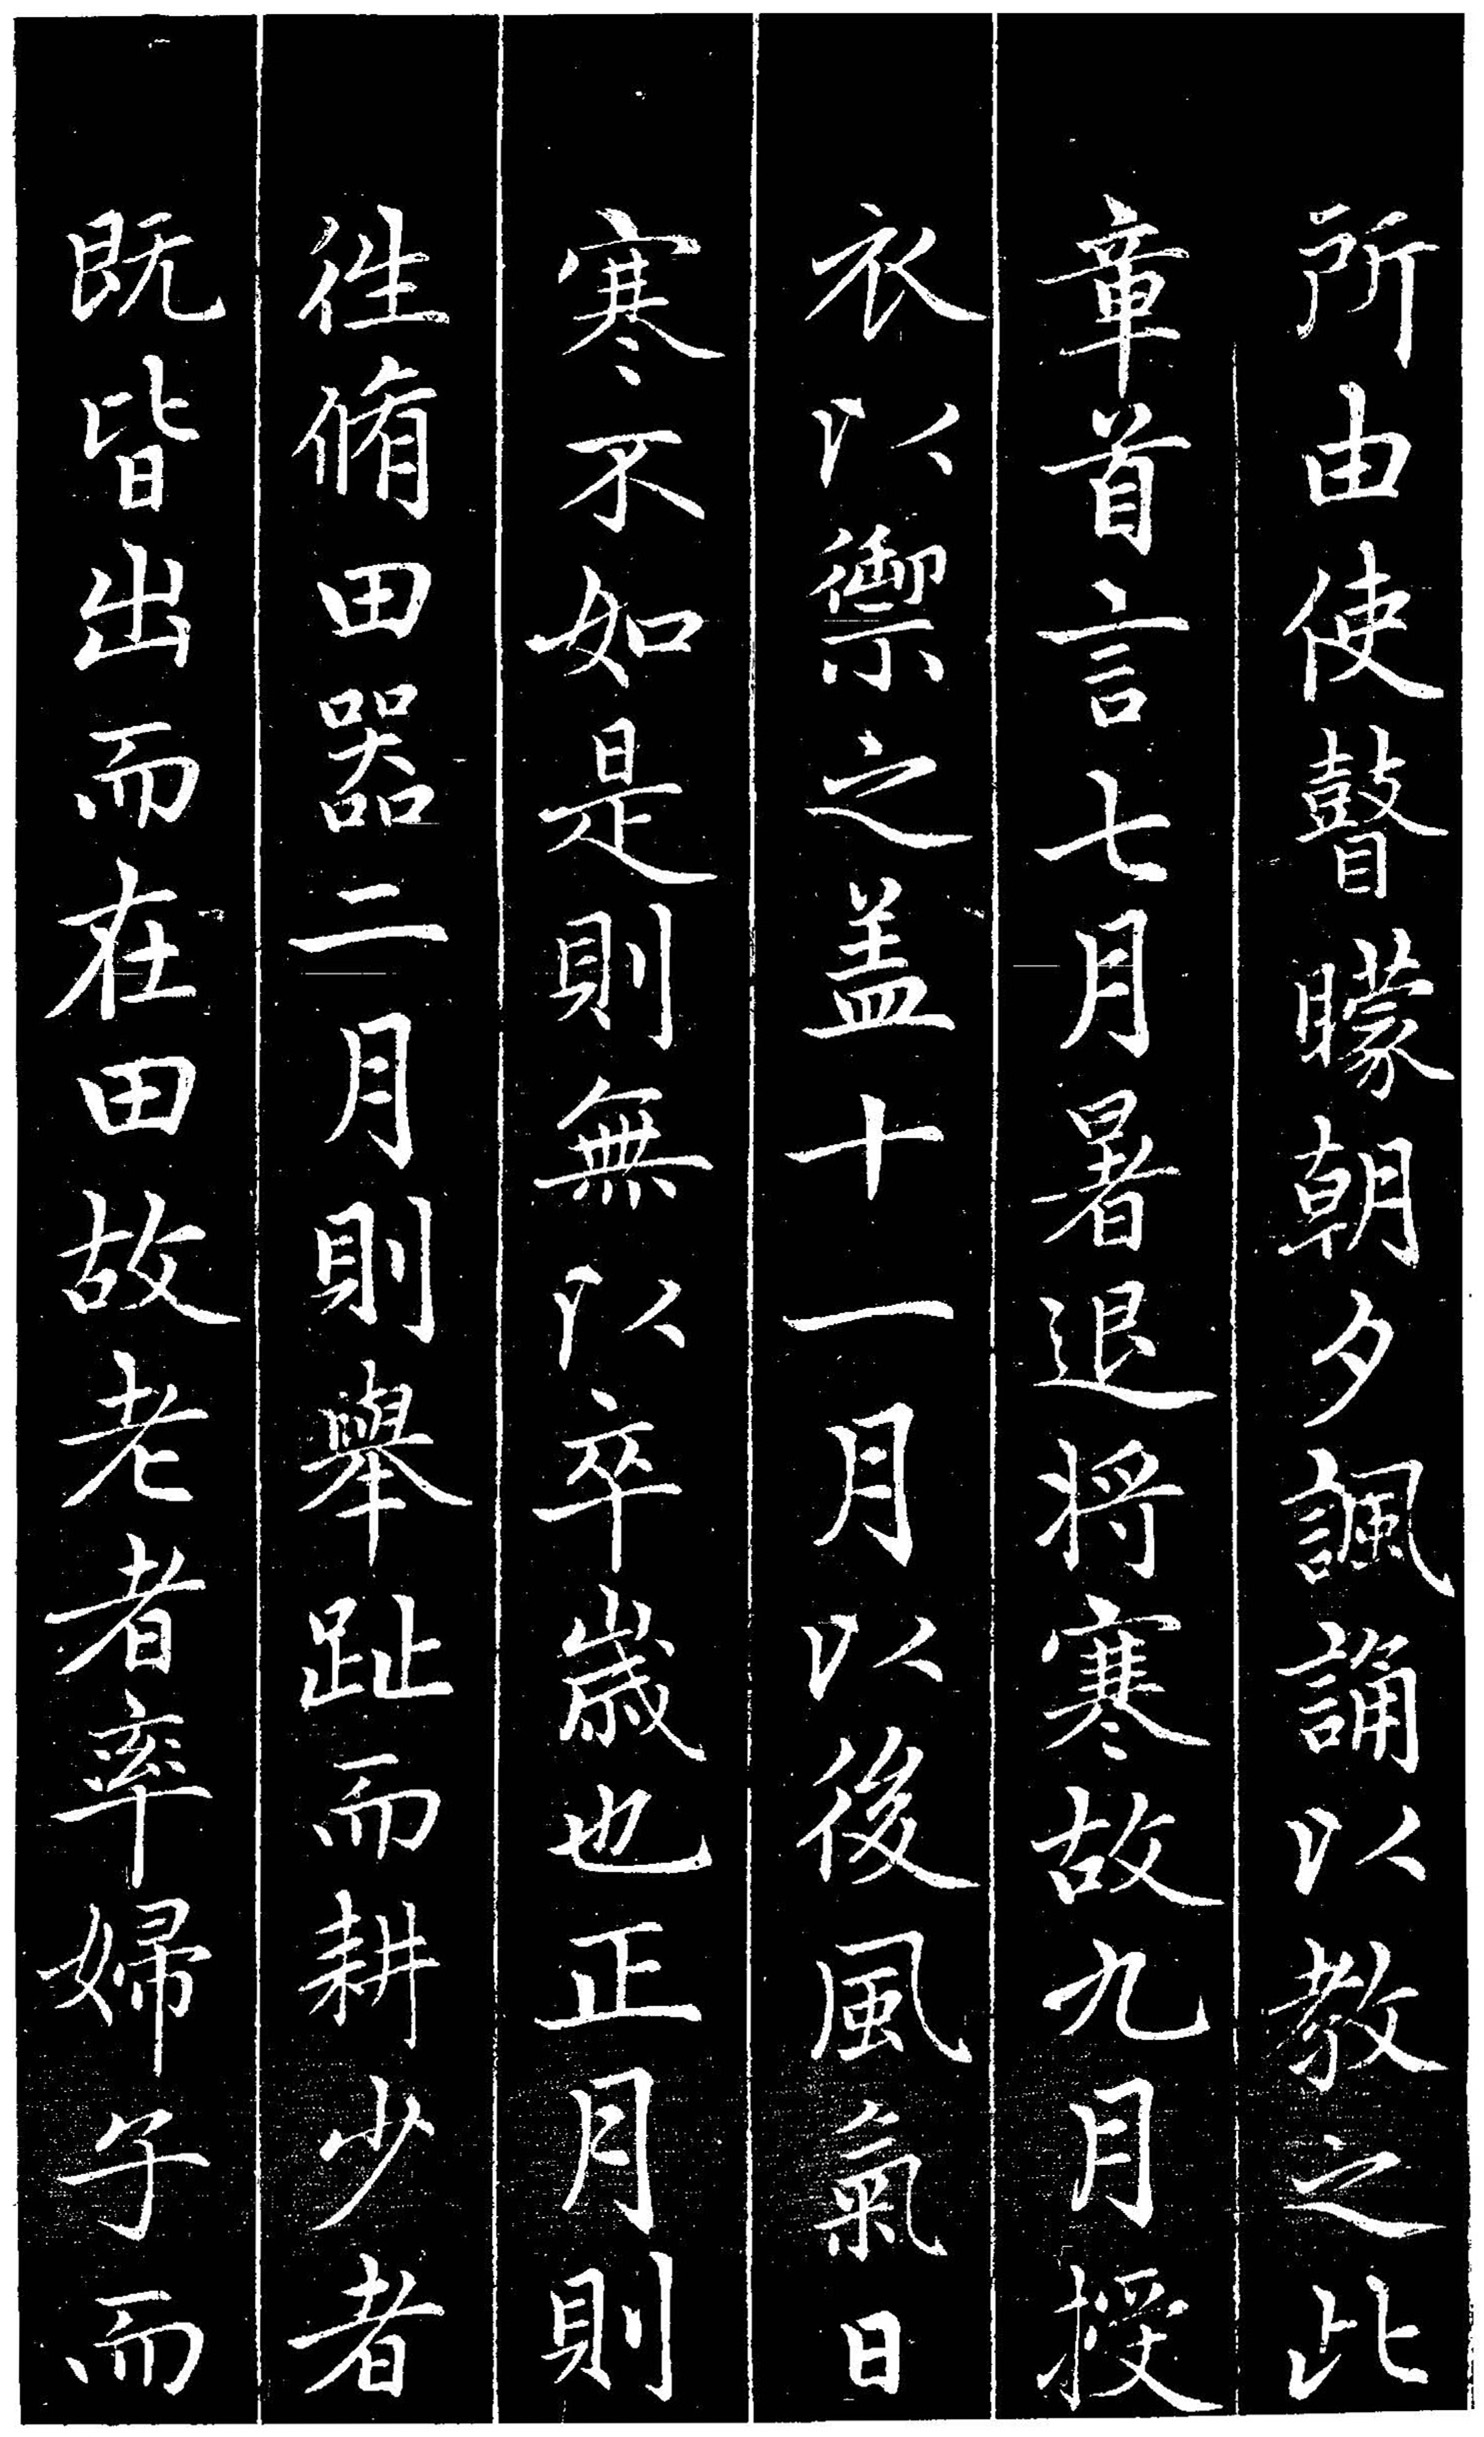 所由使瞽矇朝夕諷誦以教之此
章首言七月暑退将寒故九月授
衣以禦之盖十一月以後風氣日
寒不如是則無以卒歲也正月則
徃脩田器二月則舉趾而耕少者
既皆出而在田故老者率婦子而